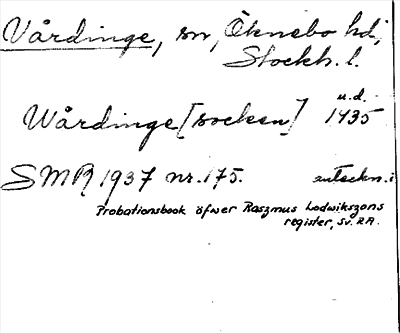 Vårdinge, sn, Öknebo hd,
Stockh. l.
u.d.
Wårdinge [socken] 1435
SMR 1937 nr. 175. anteckn. i
Probationsbook öfwer Raszmus Lodwikszons
register, Sv. RA.